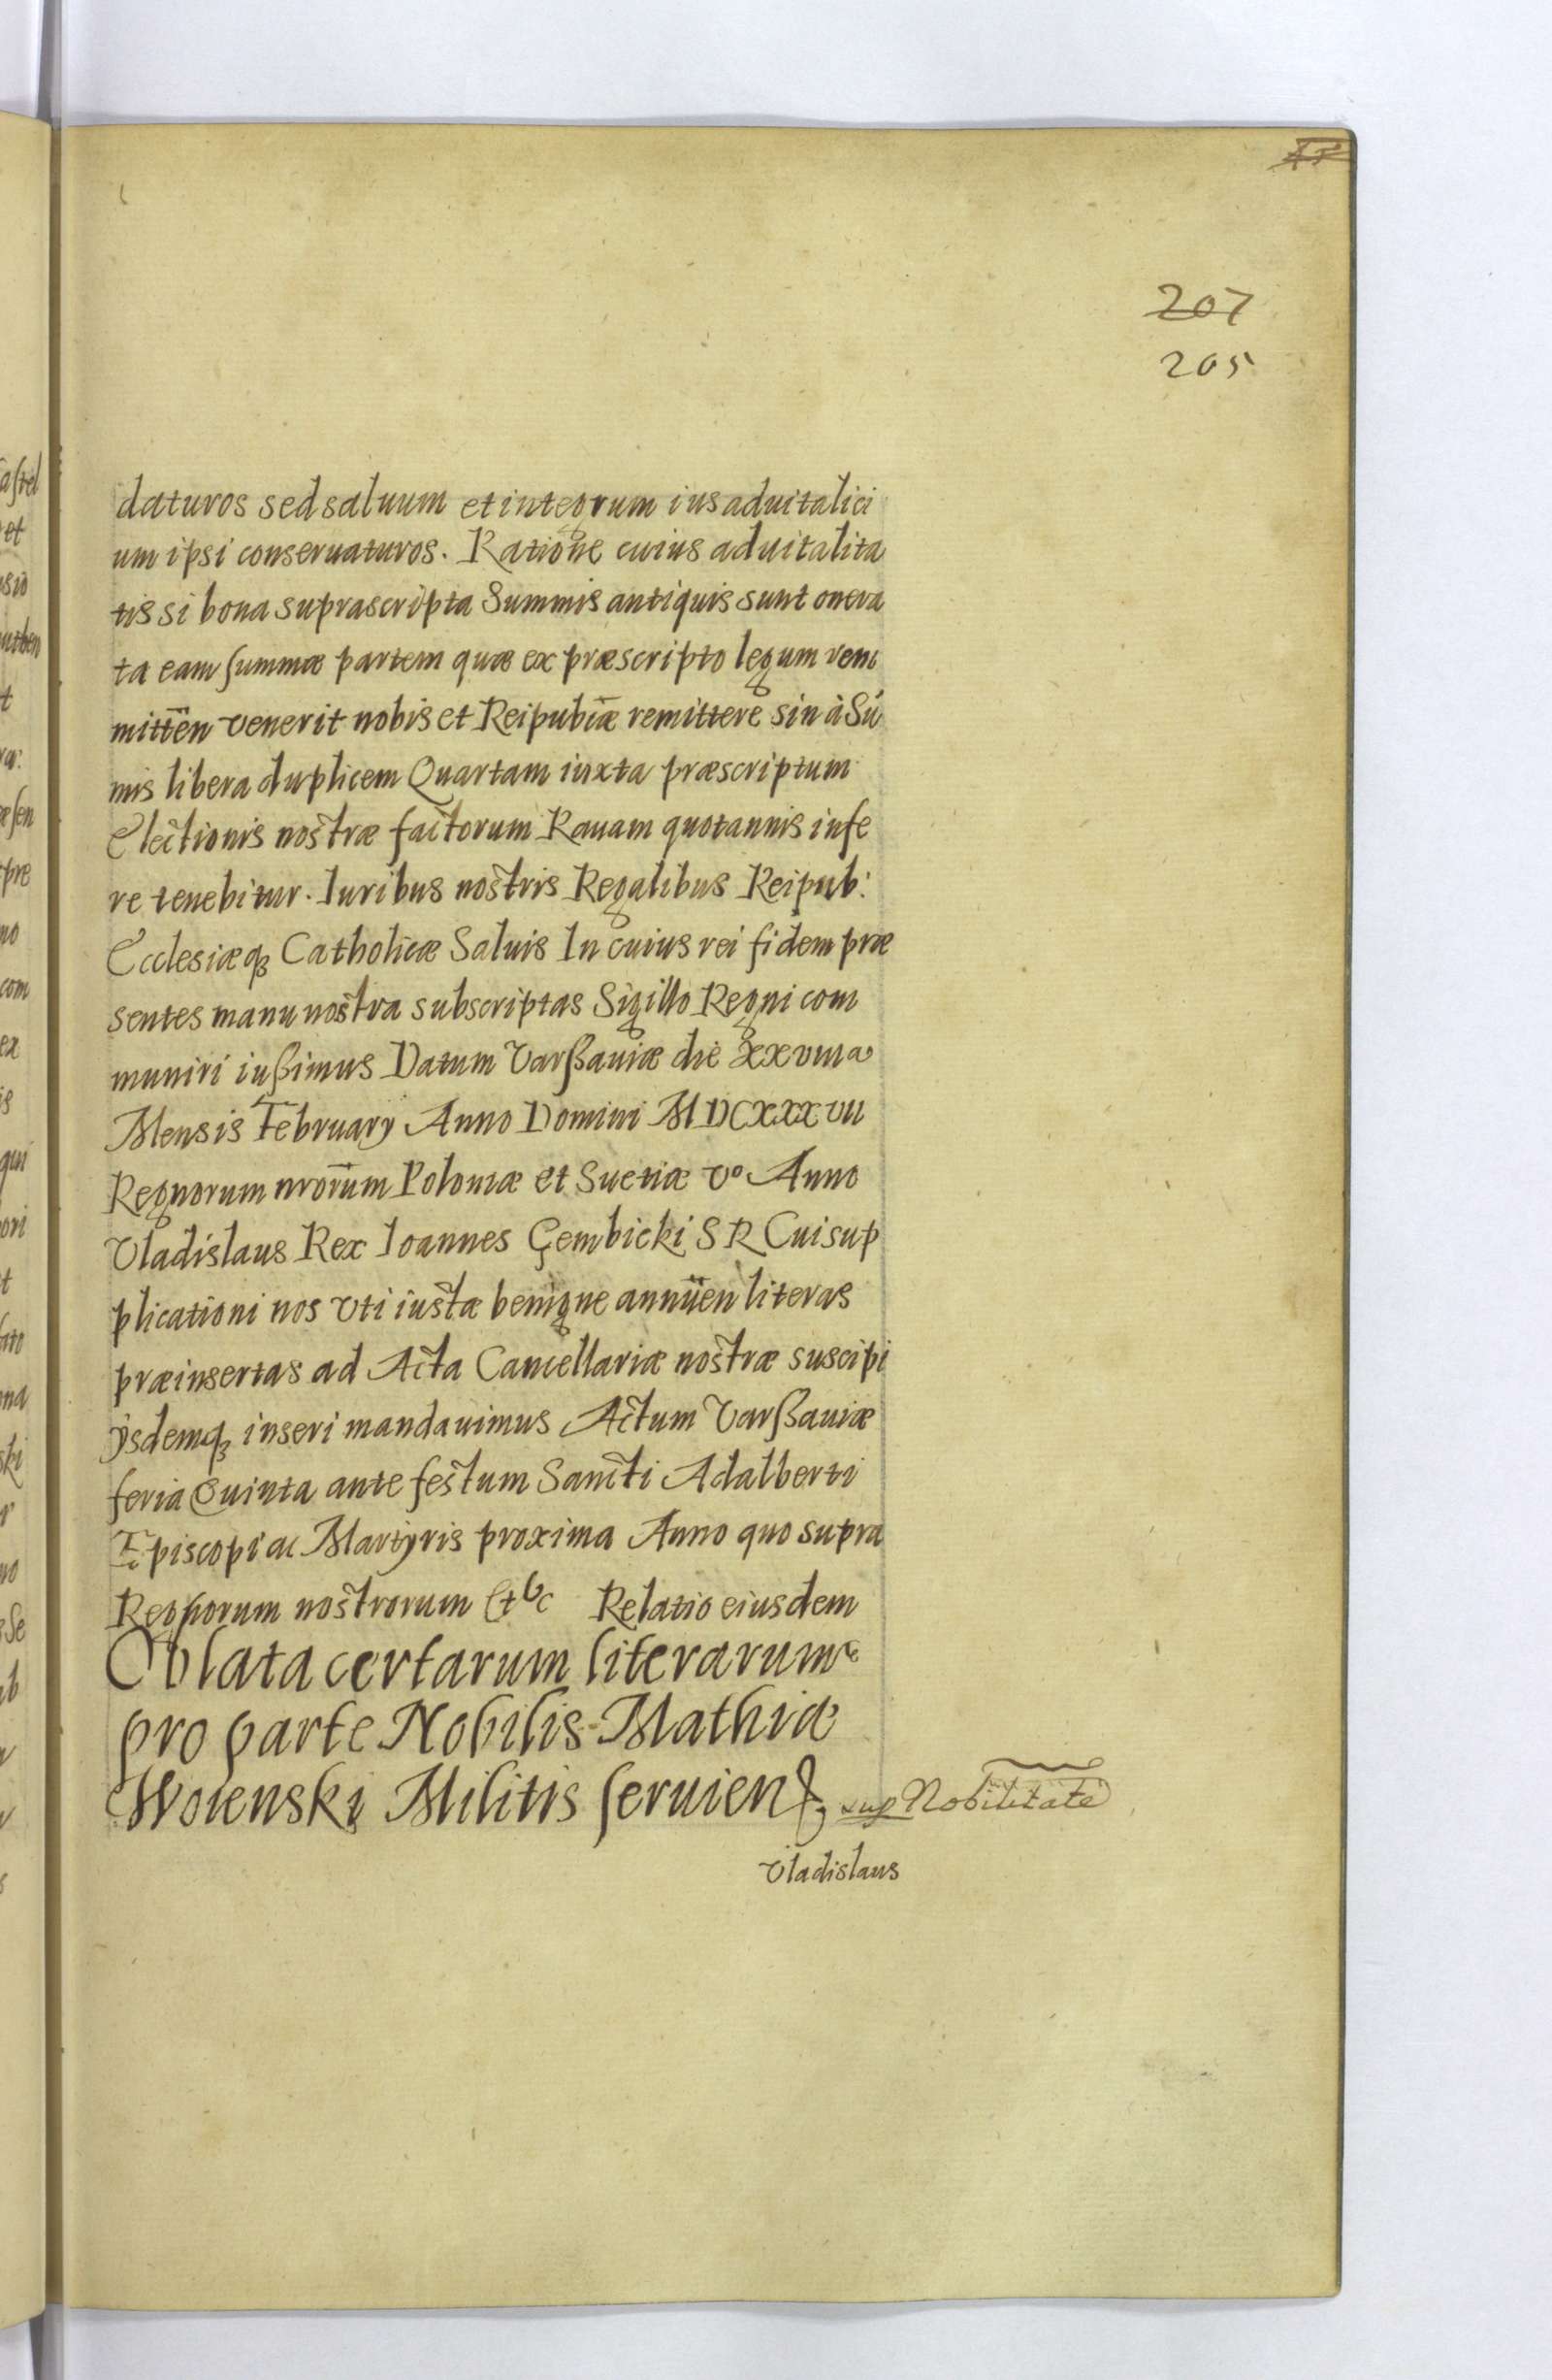 207
205
daturos sed saluum et integrum ius aduitalici
um ipsi conseruaturos. Ratione cuius aduitalita
tis si bona suprascripta Summis antiquis sunt onera
ta eam summæ partem quæ ex præscripto legum veni
mitten venerit nobis et Reipubcæ remittere sin à Su
mis libera duplicem Quartam iuxta præscriptum
Electionis nostræ factorum Rauam quotannis infe
re tenebitur. Iuribus nostris Regalibus Reipub:
Ecclesiæq Catholicæ Saluis In cuius rei fidem præ
sentes manu nostra subscriptas Sigillo Regni com
muniri iußimus Datum Varßauiæ die XXVIIIa
Mensis February Anno Domini MDCXXXVII
Regnorum nrorum Poloniæ et Suetiæ Vo Anno
Vladislaus Rex Ioannes Gembicki SR Cui sup
plicationi nos vti iustæ benigne annuen literas
præinsertas ad Acta Cancellariæ nostræ suscipi
ijsdemq inseri mandauimus Actum Varßauiæ
feria Quinta ante festum Sancti Adalberti
Episcopi ac Martyris proxima Anno quo supra
Regnorum nostrorum Relatio eiusdem
Oblata certarum literarum
pro parte Nobilis Mathiæ
Woienski Militis seruien sup Nobilitate
Vladislaus